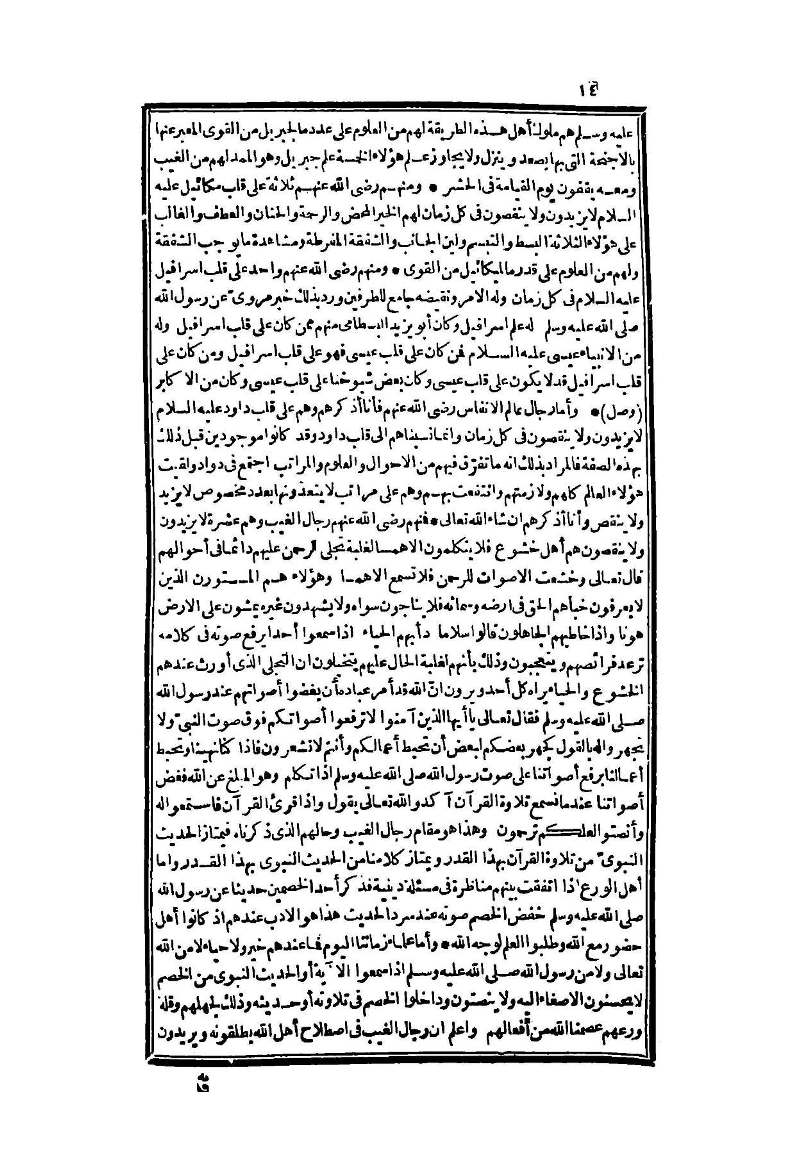 ١٤
عليه وسلم هم ملوك أهل هذه الطريقة لهم من العلوم على عدد ما لجبريل من القوى المعبر عنها
بالاجنحة التى بها يصعد وينزل ولا يجاوز علم هؤلاء الخمسة علم جبريل وهو الممد لهم من الغيب
ومعه يقفون يوم القيامة فى الحشر * ومنهم رضى الله عنهم ثلاثة على قلب ميكائيل عليه
السلام لا يزيدون ولا ينقصون فى كل زمان لهم الخير المحض والرحمة والحنان والعطف والغالب
على هؤلاء الثلاثة البسط والتبسم ولين الجانب والشفقة المفرطة ومشاهدة ما يوجب الشفقة
ولهم من العلوم على قدر ما لميكائيل من القوى * ومنهم رضى الله عنهم واحد على قلب اسرافيل
عليه السلام فى كل زمان وله الامر ونقيضه جامع للطرفين ورد بذلك خبر مروى عن رسول الله
صلى الله عليه وسلم له علم اسرافيل وكان أبو يزيد البسطامى منهم ممن كان على قلب اسرافيل وله
من الانبياء عيسى عليه السلام فمن كان على قلب عيسى فهو على قلب اسرافيل ومن كان على
قلب اسرافيل قد لا يكون على قلب عيسى وكان بعض شيوخنا على قلب عيسى وكان من الاكابر
(وصل) * وأما رجال عالم الانفاس رضى الله عنهم فأنا أذكرهم وهم على قلب داود عليه السلام
لا يزيدون ولا ينقصون فى كل زمان وانما نسبناهم الى قلب داود وقد كانوا موجودين قبل ذلك
بهذه الصفة فالمراد بذلك انه ما تفرق فيهم من الاحوال والعلوم والمراتب اجتمع فى داود ولقيت
هؤلاء العالم كلهم ولازمتهم وانتفعت بهم وهم على مراتب لا يتعدونها بعدد مخصوص لا يزيد
ولا ينقص وأنا أذكرهم ان شاء الله تعالى * فمنهم رضى الله عنهم رجال الغيب وهم عشرة لا يزيدون
ولا ينقصون هم أهل خشوع فلا يتكلمون الا همسا لغلبة تجلى الرحمن عليهم دائما فى أحوالهم
قال تعالى وخشعت الاصوات للرحمن فلا تسمع الا همسا وهؤلاء هم المستورون الذين
لا يعرفون خبأهم الحق فى ارضه وسمائه فلا يناجون سواه ولا يشهدون غيره يمشون على الارض
هونا واذا خاطبهم الجاهلون قالوا سلاما دأبهم الحياء اذا سمعوا أحدا يرفع صوته فى كلامه
ترعد فرائصهم ويتعجبون وذلك بأنهم لغلبة الحال عليهم يتخيلون ان التجلى الذى أورث عندهم
الخشوع والحياء يراه كل أحد ويرون ان الله قد أمر عباده أن يغضوا أصواتهم عند رسول الله
صلى الله عليه وسلم فقال تعالى يا أيها الذين آمنوا لا ترفعوا أصواتكم فوق صوت النبى ولا
تجهروا له بالقول كجهر بعضكم لبعض أن تحبط أعمالكم وأنتم لا تشعرون فاذا كنا نهينا وتحبط
أعمالنا برفع أصواتنا على صوت رسول الله صلى الله عليه وسلم اذا تكلم وهو المبلغ عن الله فغض
أصواتنا عندما نسمع تلاوة القرآن آكد والله تعالى يقول واذا قرئ القرآن فاستمعوا له
وأنصتوا لعلكم ترحمون وهذا هو مقام رجال الغيب وحالهم الذى ذكرناه فيمتاز الحديث
النبوى من تلاوة القرآن بهذا القدر ويمتاز كلامنا من الحديث النبوى بهذا القدر واما
أهل الورع اذا اتفقت بينهم مناظرة فى مسئلة دينية فذكر أحد الخصمين حديثا عن رسول الله
صلى الله عليه وسلم خفض الخصم صوته عند سرد الحديث هذا هو الادب عندهم اذ كانوا أهل
حضور مع الله وطلبوا العلم لوجه الله * وأما علماء زماننا اليوم فما عندهم خير ولا حياء لا من الله
تعالى ولا من رسول الله صلى الله عليه وسلم اذا سمعوا الآية أو الحديث النبوى من الخصم
لا يحسنون الاصغاء اليه ولا ينصتون وداخلوا الخصم فى تلاوته أو حديثه وذلك لجهلهم وقلة
ورعهم عصمنا الله من أفعالهم واعلم ان رجال الغيب فى اصطلاح أهل الله يطلقونه ويريدون
به